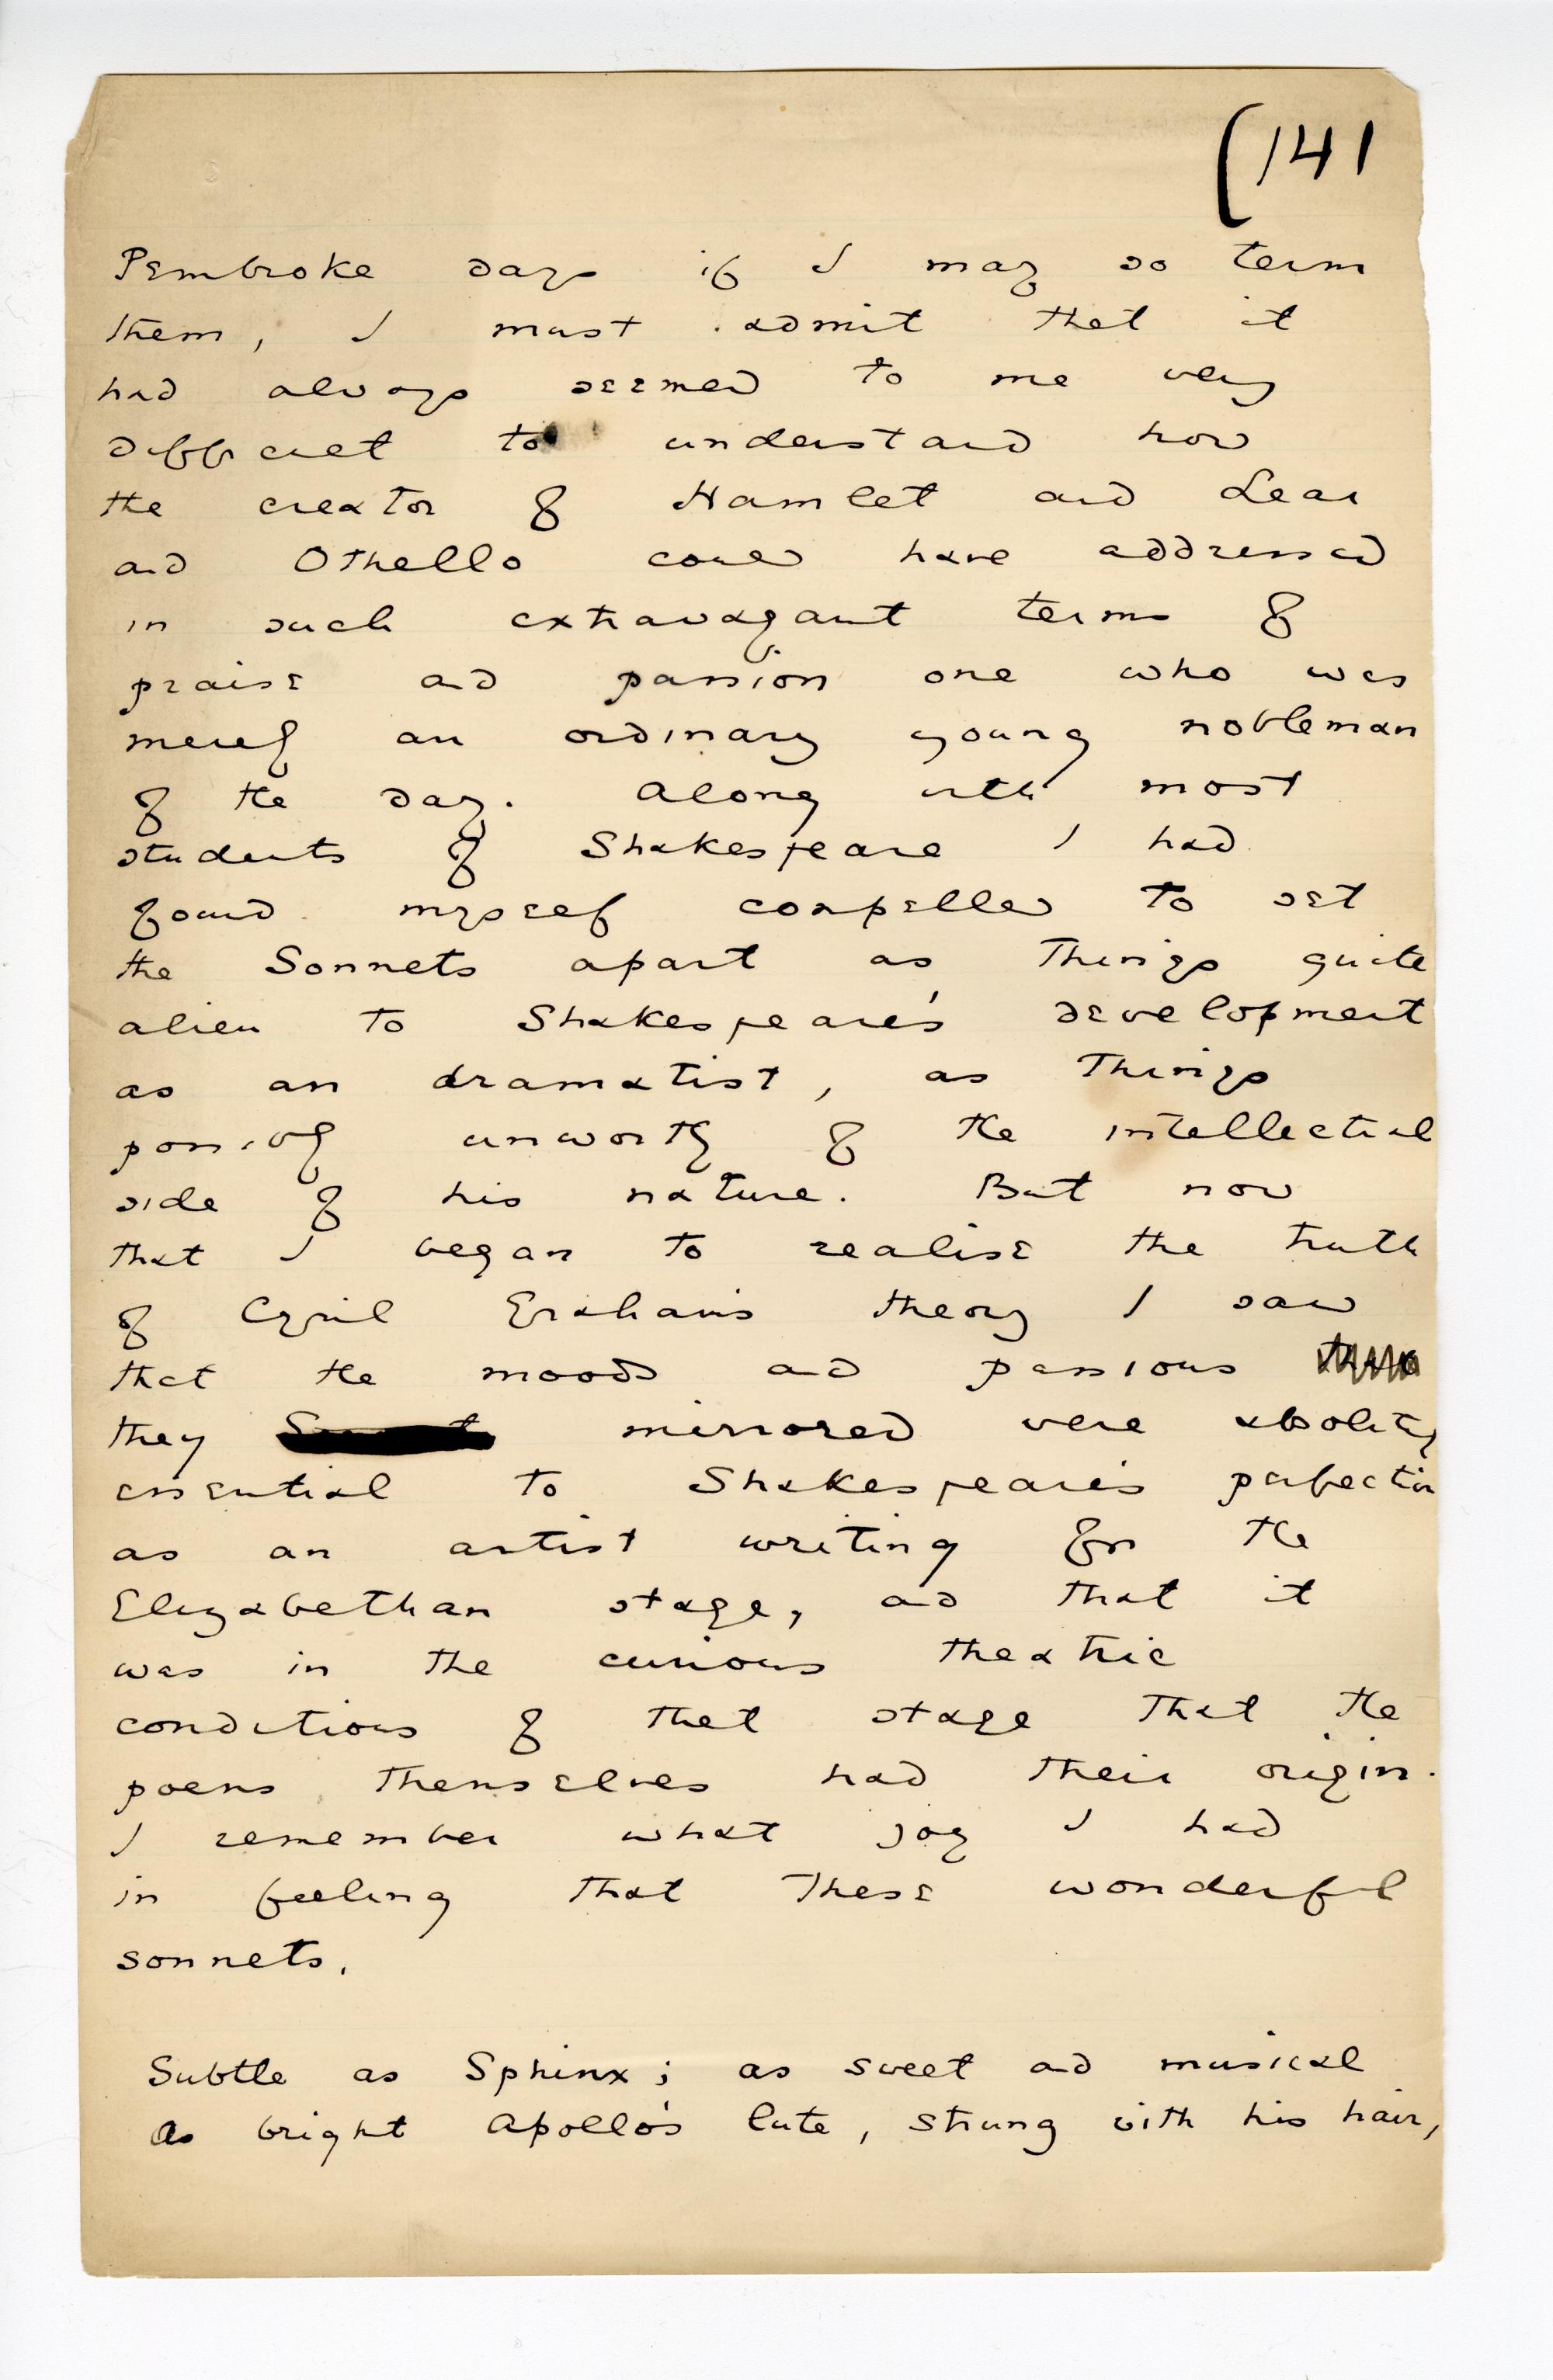 (141
Pembroke days if I may so term
them, I must admit that it
had always seemed to me very
difficult to understand how
the creator of Hamlet and Lear
and Othello could have addressed
in such extravagant terms of
praise and passion one who was
merely an ordinary young nobleman
of the day. Along with most
students of Shakespeare I had
found myself compelled to set
the Sonnets apart as things quite
alien to Shakespeare's development
as an dramatist, as things
possibly unworthy of the intellectual
side of his nature. But now
that I began to realise the truth
of Cyril Graham's theory I saw
that the moods and passions
they mirrored were absolutely
essential to Shakespeare's perfection
as an artist writing for the
Elizabethan stage, and that it
was in the curious theatric
conditions of that stage that the
poems themselves had their origin.
I remember what joy I had
in feeling that these wonderful
sonnets,
Subtle as Sphinx; as sweet and musical
As bright Apollo's lute, strung with his hair,